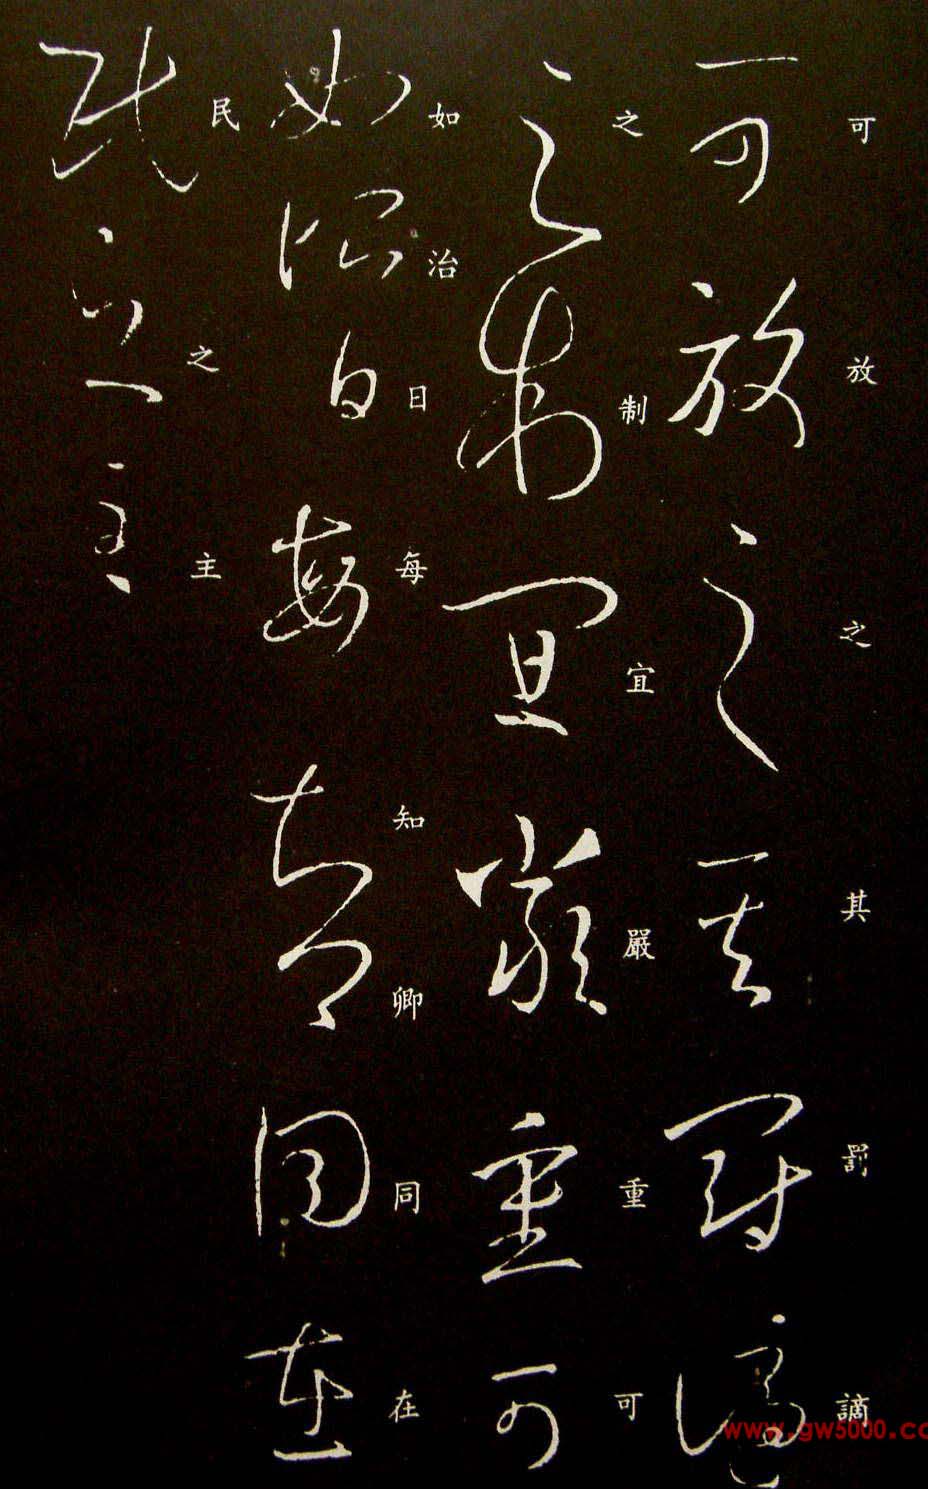 可放之其罰謫
之制宜嚴重可
如治日每知卿同在
民之主
www.gw5000.cc